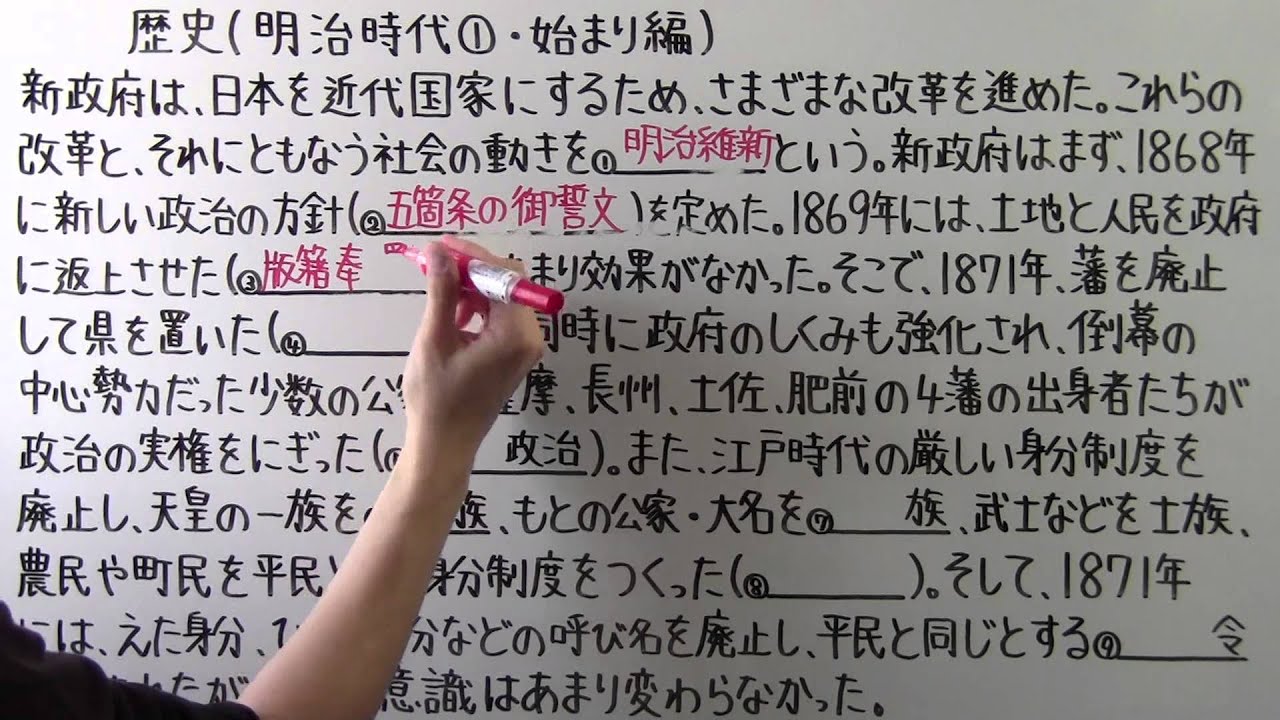 歴史(明治時代①・始まり編)
新政府は、日本を近代国家にするため、さまざまな改革を進めた。これらの
改革と、それにともなう社会の動きを①明治維新という。新政府はまず、1868年
に新しい政治の方針(②五箇条の御誓文)を定めた。1869年には、土地と人民を政府
に返上させた(③版籍奉 まり効果がなかった。そこで、1871年、藩を廃止
して県を置いた(④ 同時に政府のしくみも強化され、倒幕の
中心勢力だった少数の公 摩、長州、土佐、肥前の4藩の出身者たちが
政治の実権をにぎった( 政治)。また、江戸時代の厳しい身分制度を
廃止し、天皇の一族を 族、もとの公家・大名を⑦ 族、武士などを士族、
農民や町民を平民 身分制度をつくった(⑧ )。そして、1871年
には、えた身分、ひ 分などの呼び名を廃止し、平民と同じとする⑨ 令
されたが 意識はあまり変わらなかった。